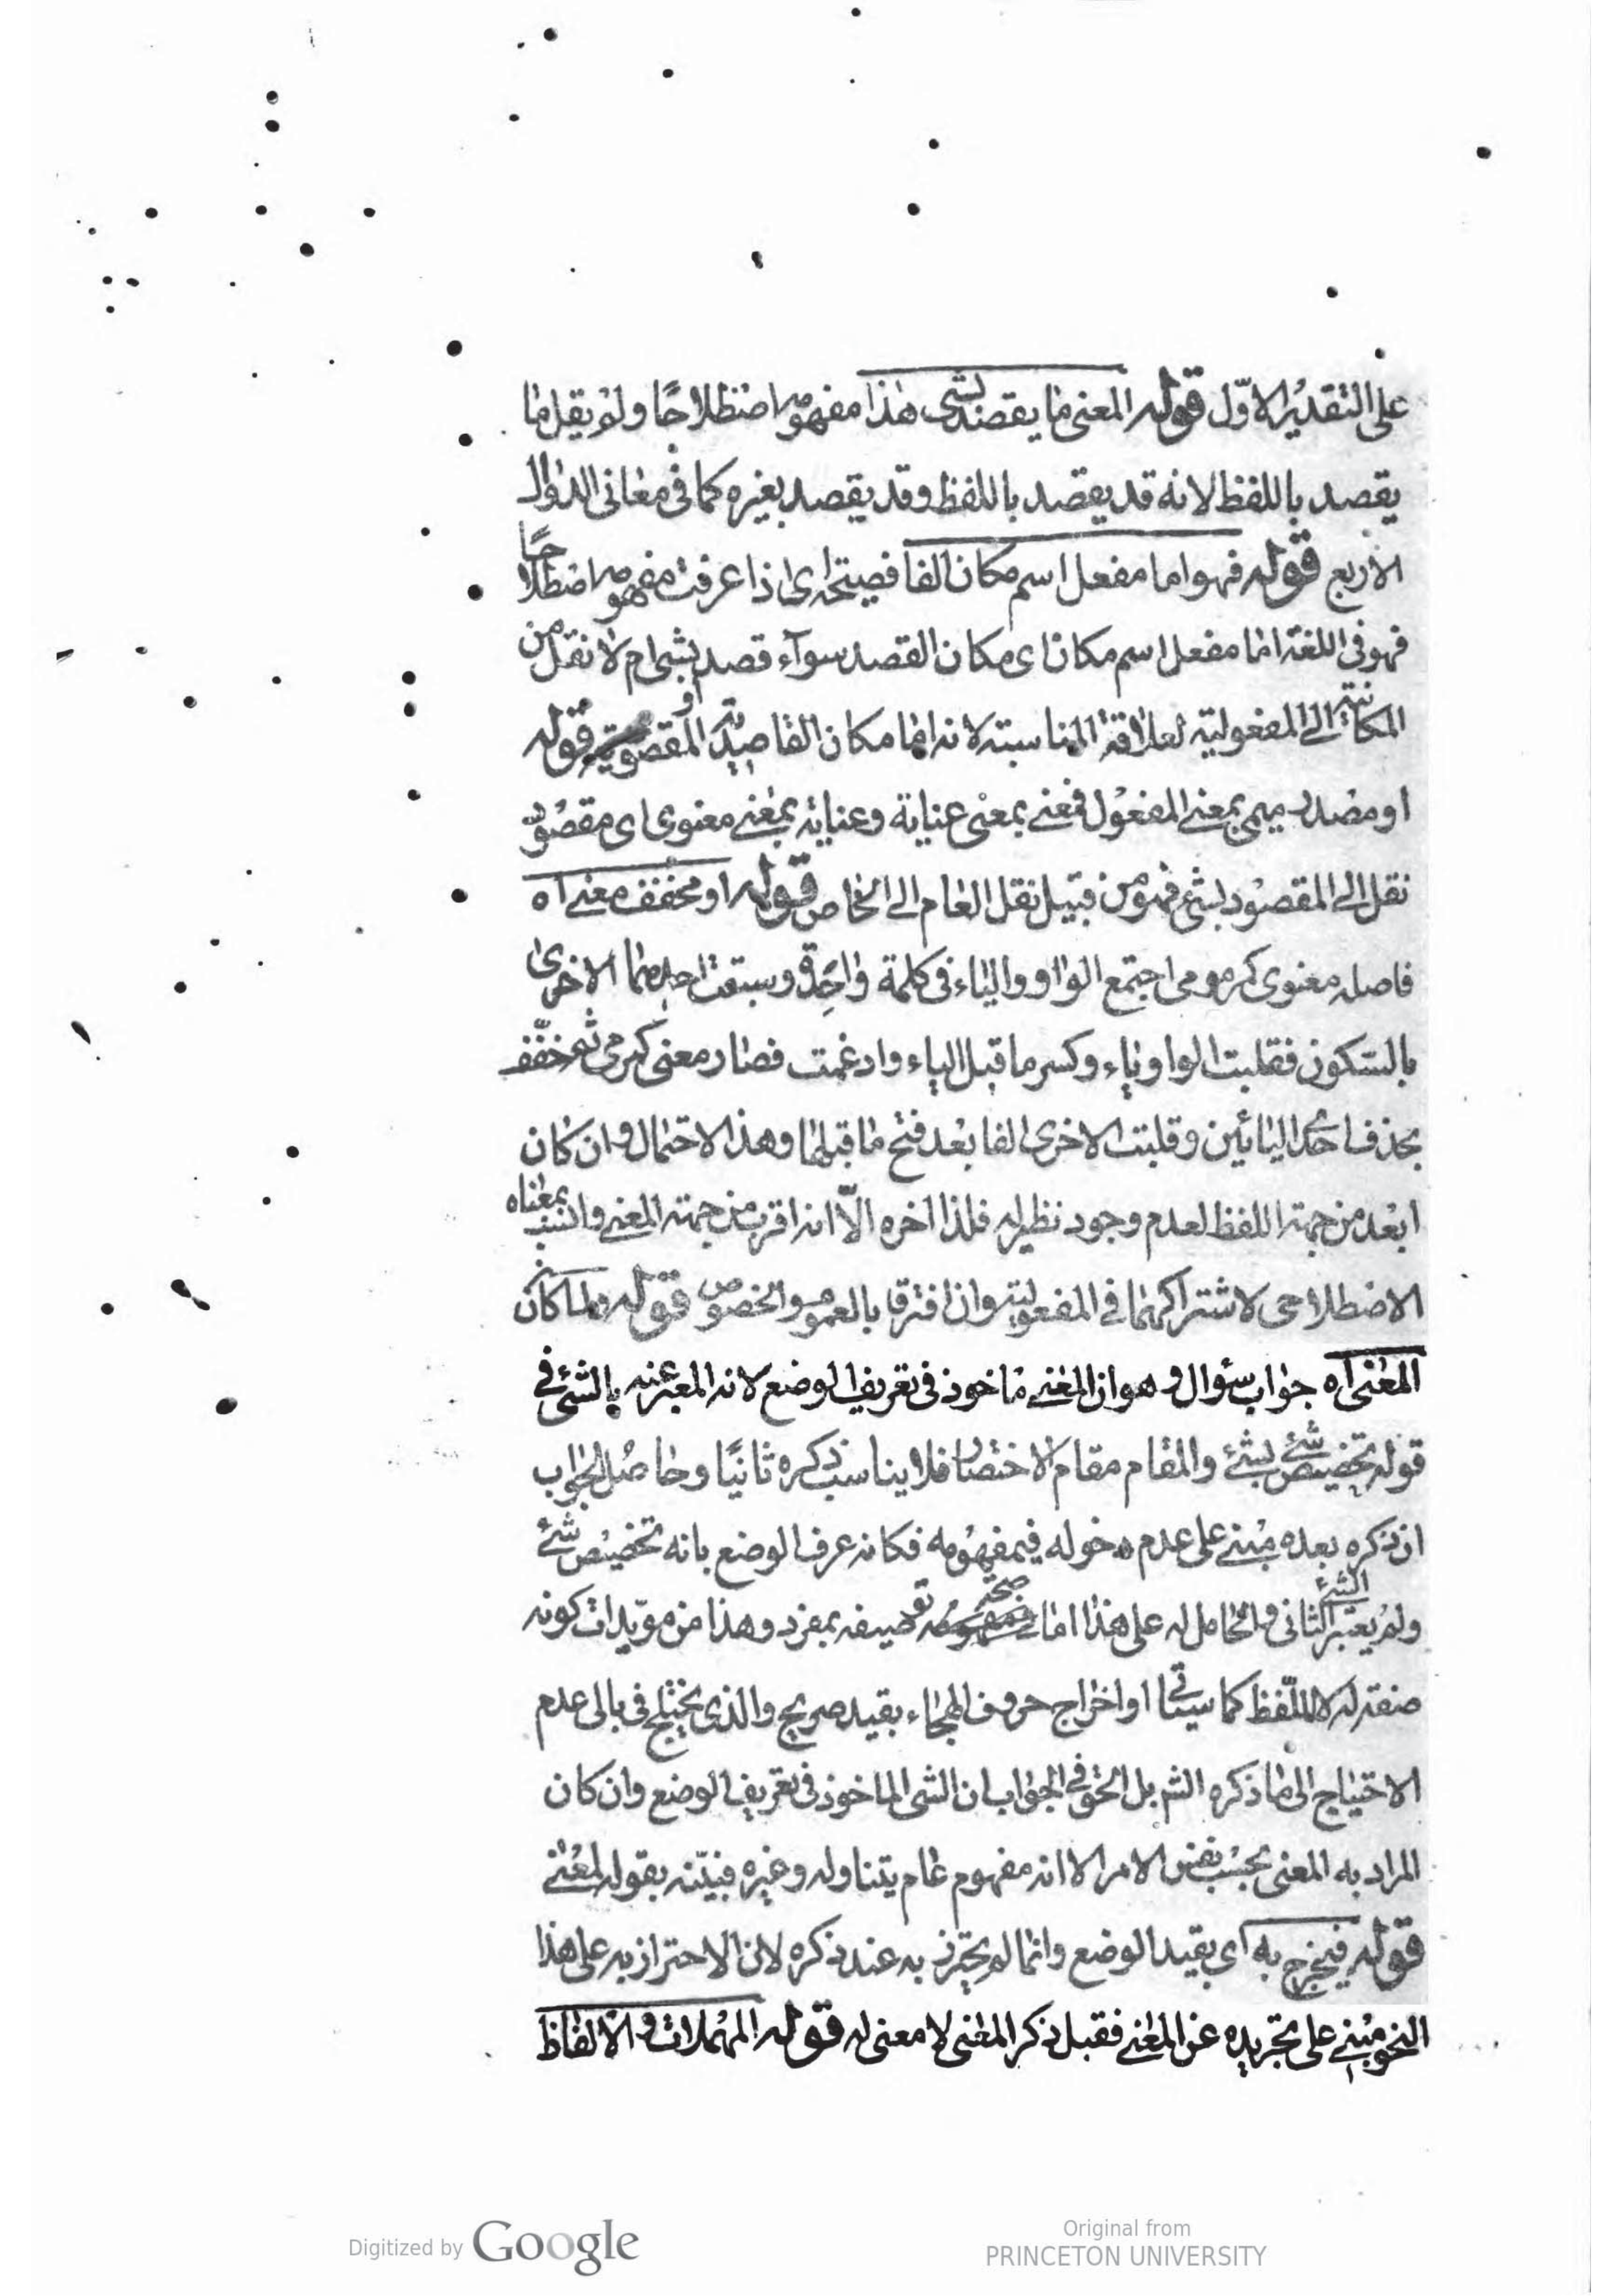 على التقدير الاوّل قوله المعنى ما يقصد بشئ هذا مفهومه اصطلاحًا ولم يقل ما
يقصد باللفظ لانه قد يقصد باللفظ وقد يقصد بغيره كما فى معانى الدوال
الاربع قوله فهو اما مفعل اسم مكان الفا فصيحة اى اذا عرفت مفهومه اصطلاحًا
فهو فى اللغة اما مفعل اسم مكان اى مكان القصد سوآء قصد بشئ ام لا نقل من
المكانية الى المفعولية لعلاقة المناسبة لانه اما مكان القاصدية او المقصودية قوله
او مصدر ميمى بمعنى المفعول فمعنى بمعنى عناية وعناية بمعنى معنوى اى مقصود
نقل الى المقصود بشئ فهو من قبيل نقل العام الى الخاص قوله او مخفف معنى اه
فاصله معنوى كمرموى اجتمع الواو والياء فى كلمة واحدة وسبقت احدهما الاخرى
بالسكون فقلبت الواو ياء وكسر ما قبل الياء وادغمت فصار معنى كمرمى ثم خفّف
بحذف احدى اليائين وقلبت الاخرى الفا بعد فتح ما قبلها وهذا الاحتمال وان كان
ابعد من جهة اللفظ لعدم وجود نظيره فلذا اخره الّا انه اقرب من جهة المعنى وانسب بمعناه
الاصطلاحى لاشتراكهما فى المفعولية وان افترقا بالعموم والخصوص قوله ولما كان
المعنى اه جواب سؤال وهو ان المعنى ماخوذ فى تعريف الوضع لانه المعبر عنه بالشئ فى
قوله تخصيص شئ بشئ والمقام مقام الاختصار فلا يناسب ذكره ثانيًا وحاصل الجواب
ان ذكره بعده مبنى على عدم دخوله فى مفهومه فكانه عرف الوضع بانه تخصيص شئ
ولم يعتبر الشئ الثانى والحامل له على هذا اما صحة توصيفه بمفرد وهذا من مويدات كونه
صفة له لا للّفظ كما سيأتى او اخراج حروف الهجاء بقيد صريح والذى يختلج فى بالى عدم
الاحتياج الى ما ذكره الشم بل الحق فى الجواب ان الشئ الماخوذ فى تعريف الوضع وان كان
المراد به المعنى بحسب نفس الامر الا انه مفهوم عام يتناوله وغيره فبيّنه بقوله لمعنى
قوله فيخرج به اى بقيد الوضع وانما لم يحترز به عند ذكره لان الاحتراز به على هذا
النحو مبنى على تجريده عن المعنى فقبل ذكر المعنى لا معنى له قوله المهملات والالفاظ
Digitized by Google
Original from
PRINCETON UNIVERSITY